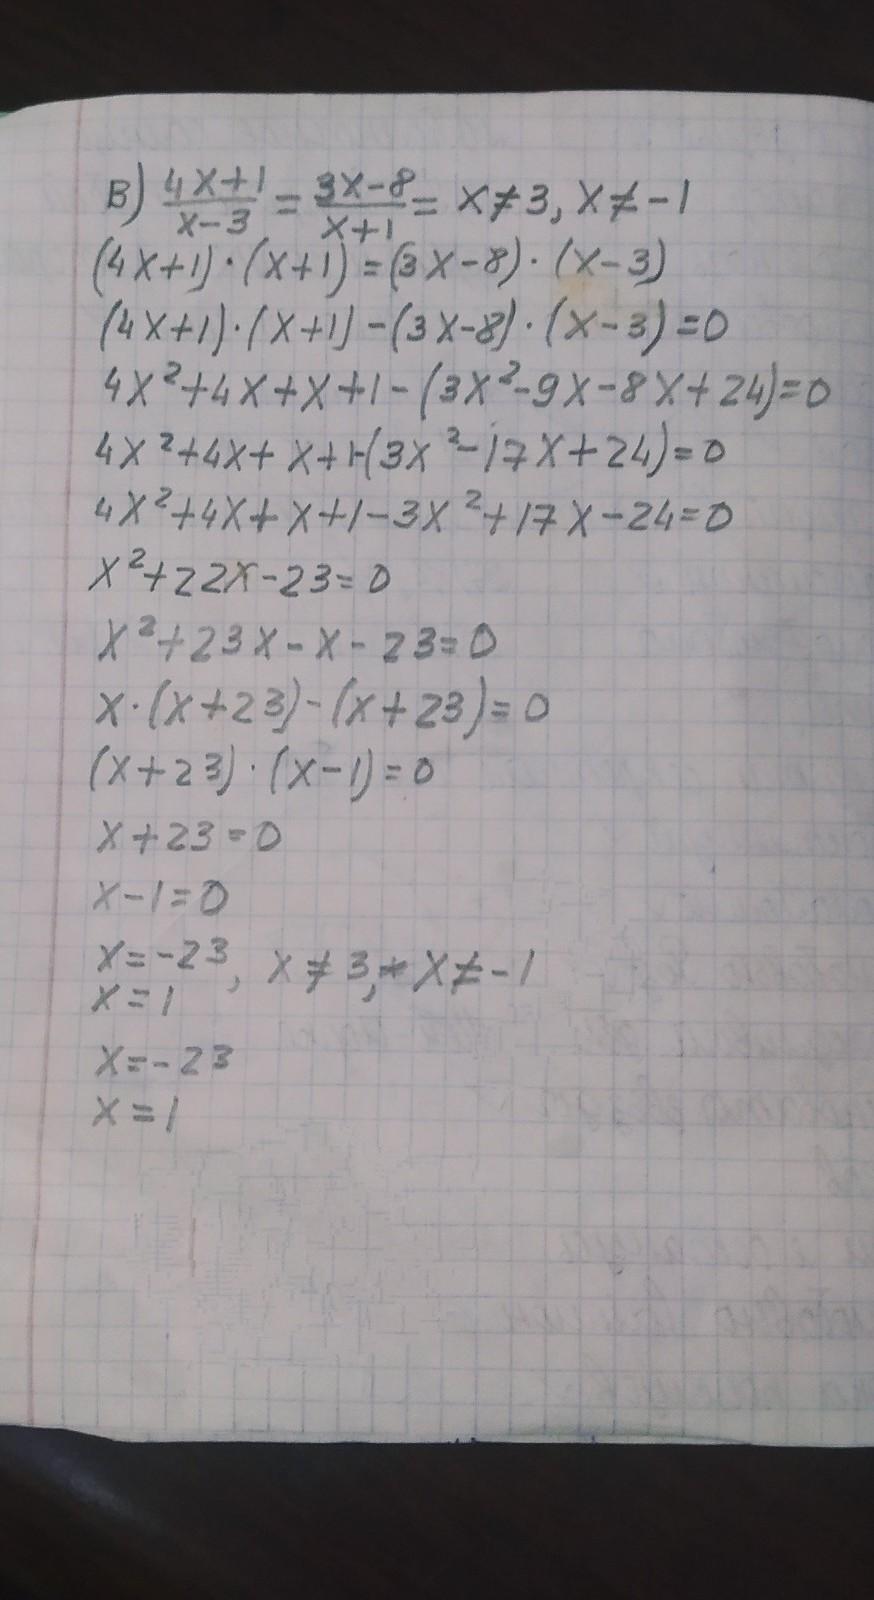 в) (4x+1)/(x-3) = (3x-8)/(x+1) = x≠3, x≠-1
(4x+1)·(x+1)=(3x-8)·(x-3)
(4x+1)·(x+1)-(3x-8)·(x-3)=0
4x²+4x+x+1-(3x²-9x-8x+24)=0
4x²+4x+x+1-(3x²-17x+24)=0
4x²+4x+x+1-3x²+17x-24=0
x²+22x-23=0
x²+23x-x-23=0
x·(x+23)-(x+23)=0
(x+23)·(x-1)=0
x+23=0
x-1=0
x=-23, x≠3, x≠-1
x=1
x=-23
x=1